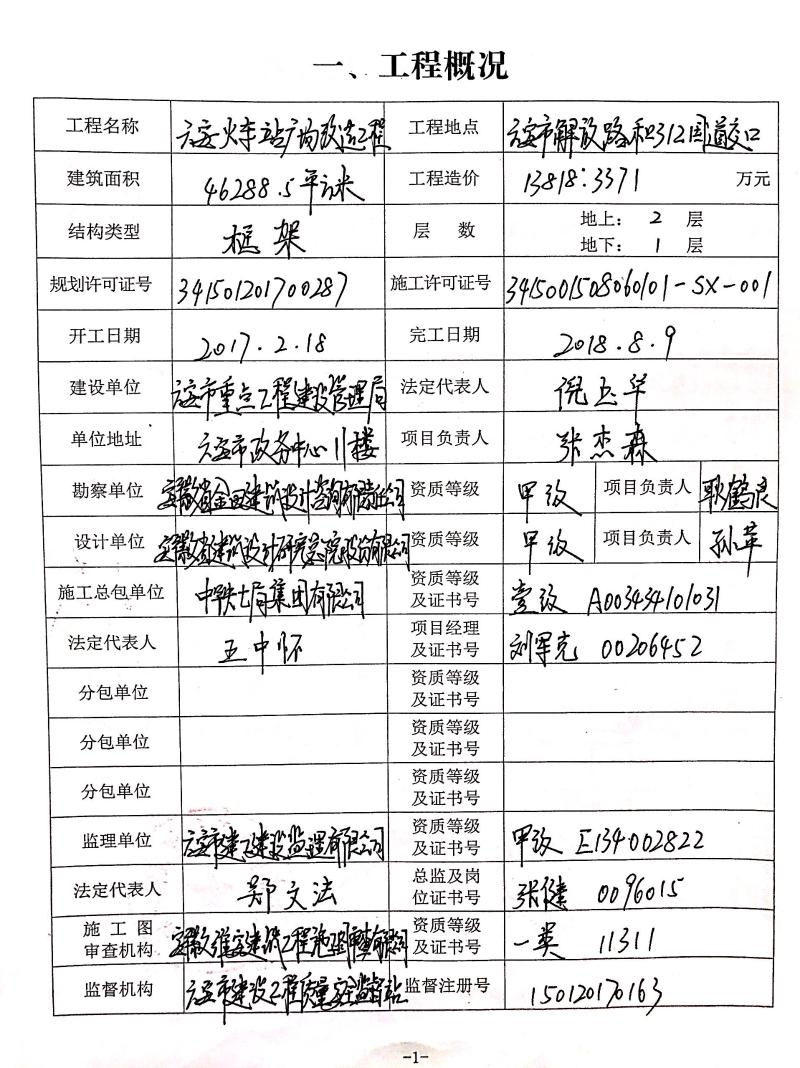 一、工程概况
工程名称 六安火车站广场改造工程 工程地点 六安市解放路和312国道交口
建筑面积 46288.5平方米 工程造价 13818.3371 万元
结构类型 框架 层 数 地上： 2 层
地下： 1 层
规划许可证号 341501201700287 施工许可证号 3415001508060101-SX-001
开工日期 2017.2.18 完工日期 2018.8.9
建设单位 六安市重点工程建设管理局 法定代表人 倪玉华
单位地址 六安市政务中心11楼 项目负责人 张杰森
勘察单位 安徽省金田建筑设计咨询有限责任公司 资质等级 甲级 项目负责人 耿鹤良
设计单位 安徽省建筑设计研究总院股份有限公司 资质等级 甲级 项目负责人 孙苹
施工总包单位 中铁七局集团有限公司 资质等级
及证书号 壹级 A003434101031
法定代表人 王中怀 项目经理
及证书号 刘军克 00206452
分包单位 资质等级
及证书号
分包单位 资质等级
及证书号
分包单位 资质等级
及证书号
监理单位 六安市建工建设监理有限公司 资质等级
及证书号 甲级 E134002822
法定代表人 郑文法 总监及岗
位证书号 张健 0096015
施 工 图
审查机构 安徽维安建筑工程施工图审查有限公司 资质等级
及证书号 一类 11311
监督机构 六安市建设工程质量安全监督站 监督注册号 150120170163
-1-